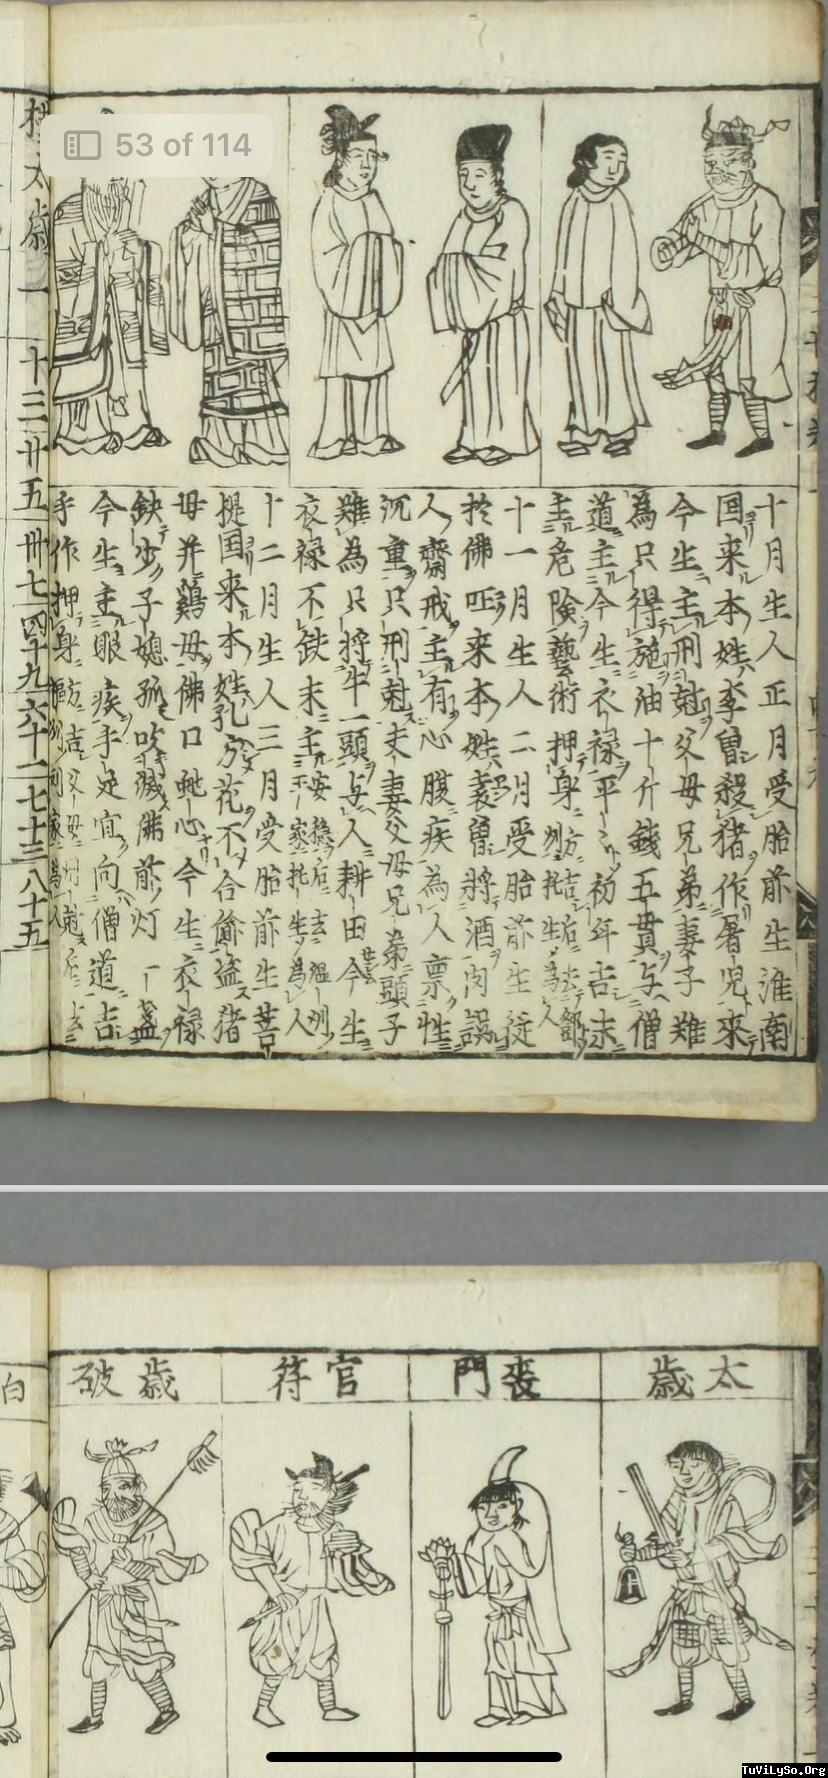 53 of 114
十月生人正月受胎前生淮南
国来本姓李曽殺猪作屠児來
今生主刑尅父母兄弟妻子難
為只得施油十斤錢五貫与僧
道主今生衣禄平〻初年吉末
主危険藝術押身
十一月生人二月受胎前生從
於佛 来本姓袁曽將酒肉誤
人齋戒主有心腹疾為人禀性
沉重只刑尅夫妻父母兄弟頭子
難為只将牛一頭与人耕田今生
衣禄不鈌末主安
十二月生人三月受胎前生菩
提国来本姓孔 花不合偷盗猪
母并鷄母佛口虵心今生衣禄
鈌少子媳孤吹滅佛前灯一盞
今生主眼疾手足宜向僧道吉
手作押身
太歳一 十三 廿五 卅七 四十九 六十二 七十三 八十五
太歳
喪門
官符
歳破
白
TuViLySo.Org